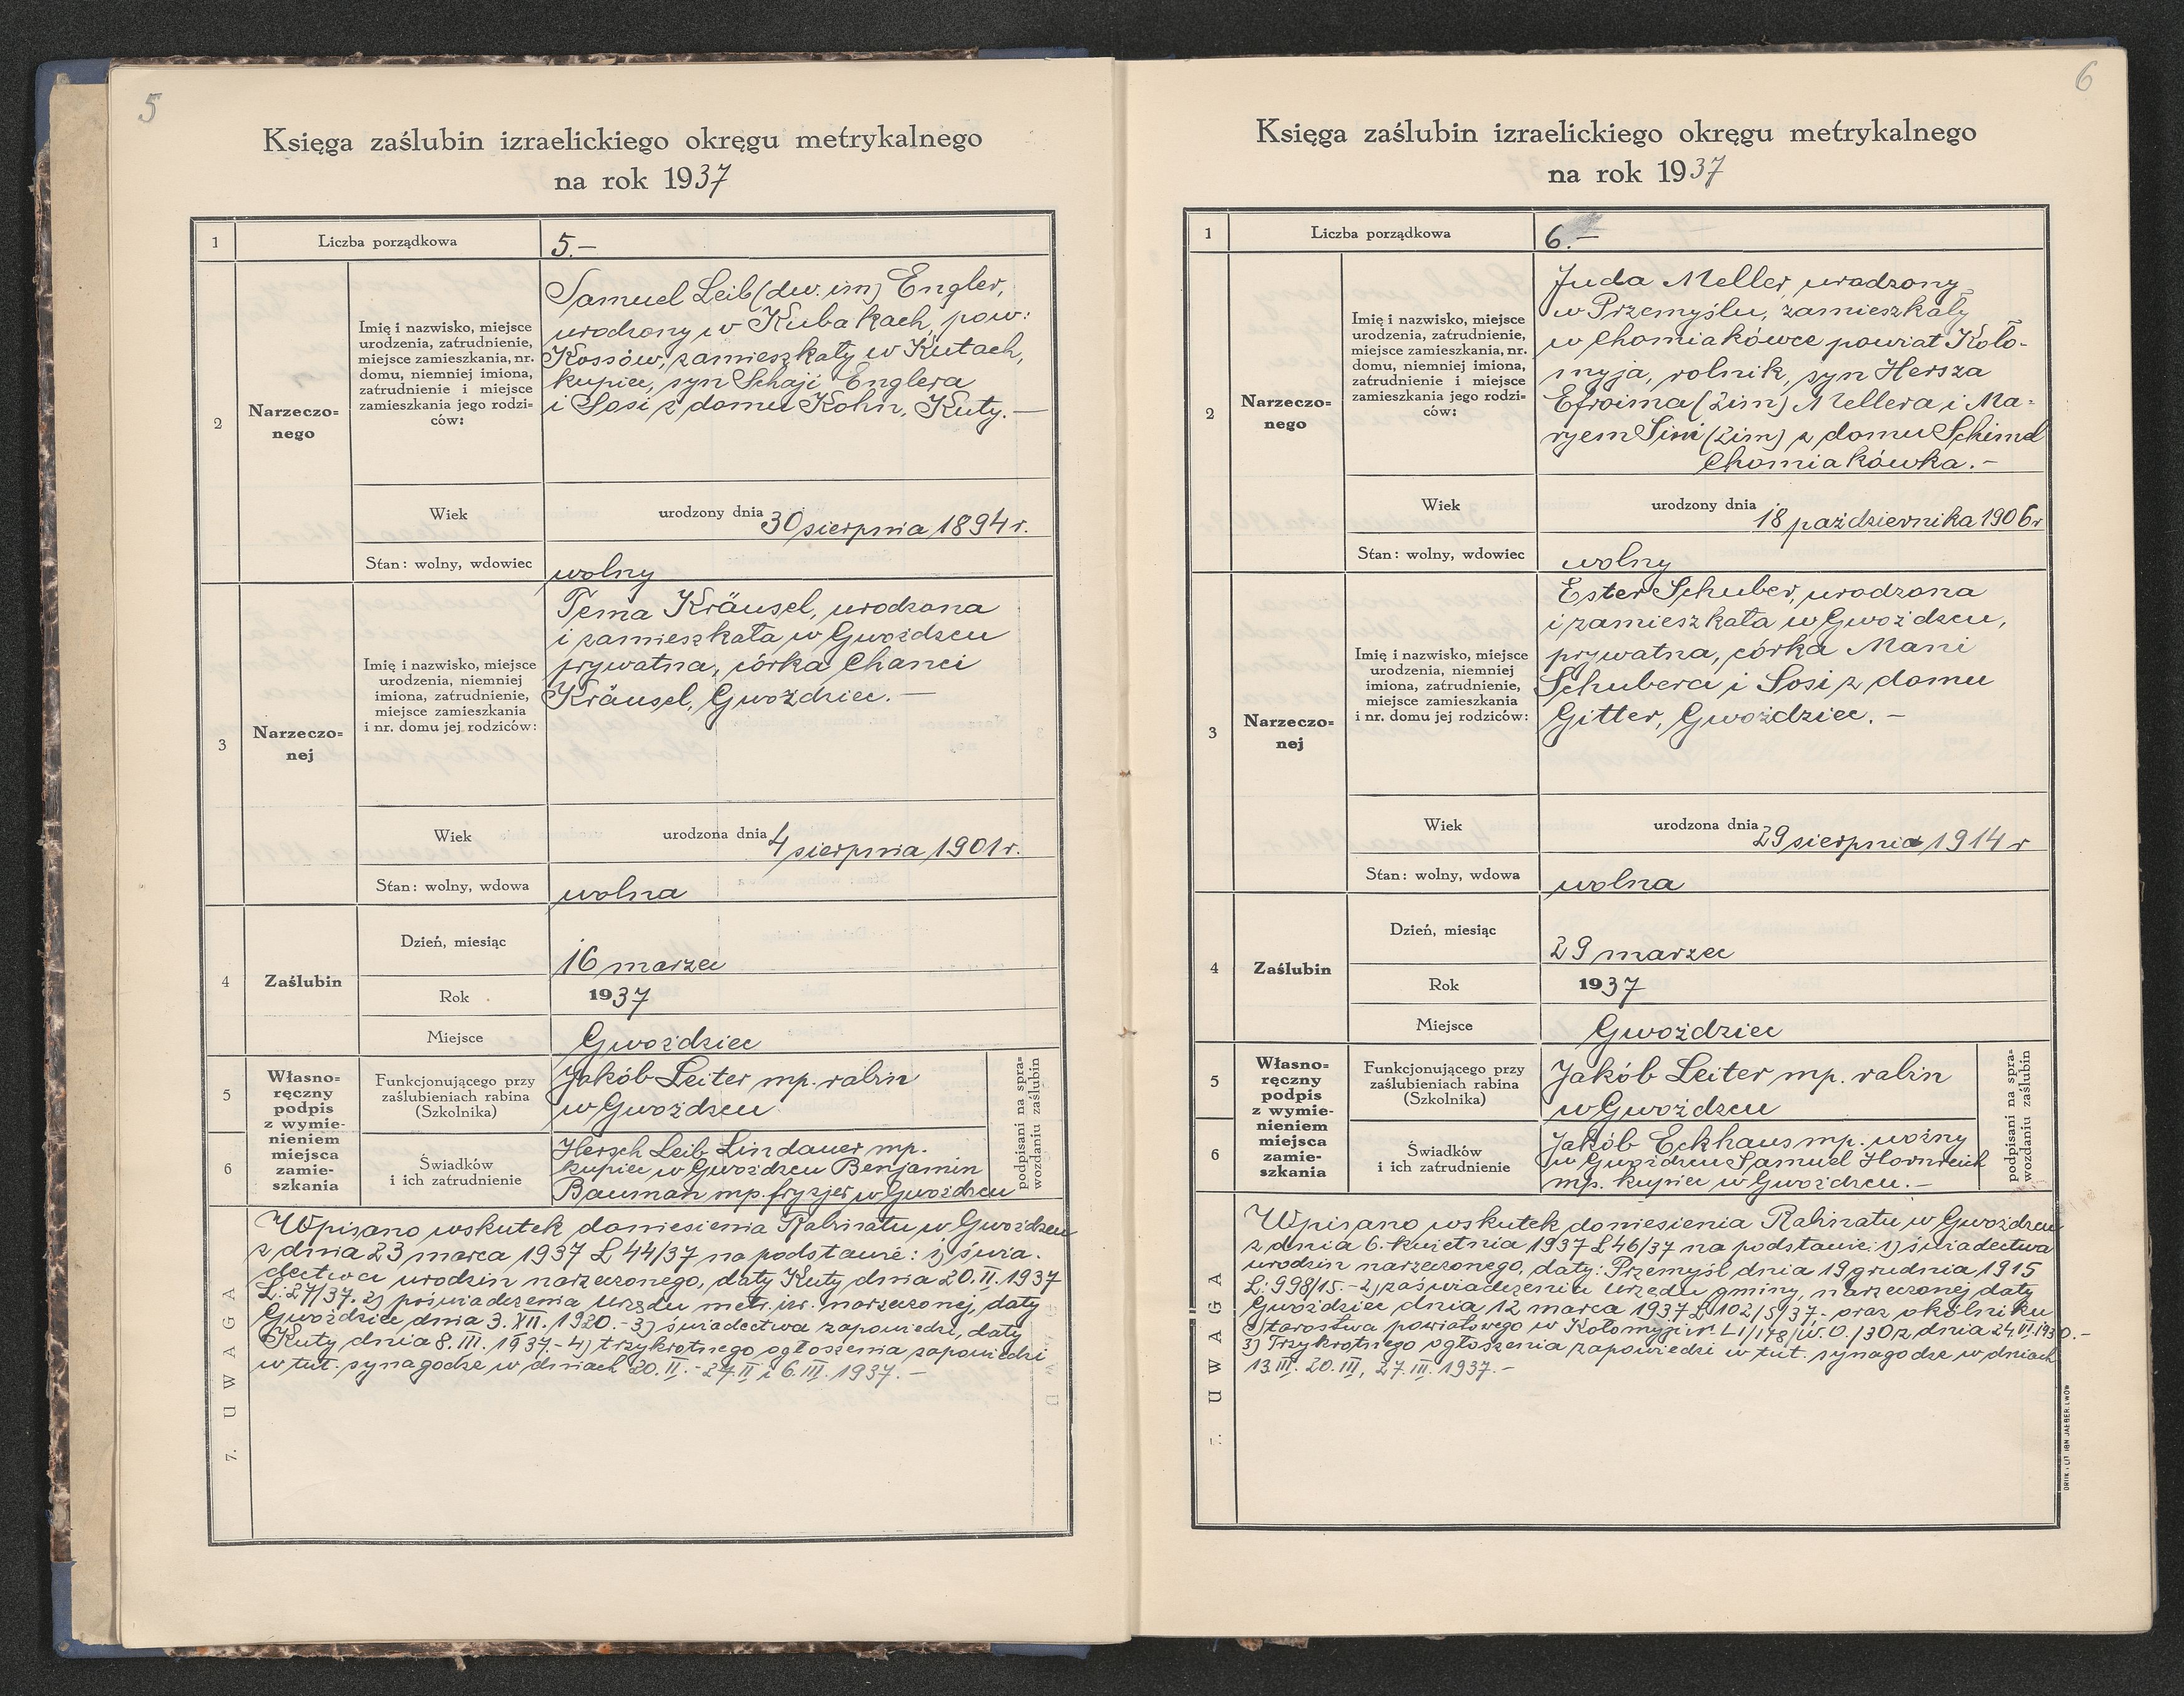 5
Księga zaślubin izraelickiego okręgu metrykalnego
na rok 1937
1
Liczba porządkowa
5.-
2
Narzeczo=
nego
Imię i nazwisko, miejsce
urodzenia, zatrudnienie,
miejsce zamieszkania, nr.
domu, niemniej imiona,
zatrudnienie i miejsce
zamieszkania jego rodzi=
ców:
Samuel Leib (dw. im) Engler,
urodzony w Kubakach, pow:
Kossów, zamieszkały w Kutach,
kupiec, syn Schaji Englera
i Sosi z domu Kohn, Kuty. —
Wiek
urodzony dnia 30 sierpnia 1894 r.
Stan: wolny, wdowiec
wolny
3
Narzeczo=
nej
Imię i nazwisko, miejsce
urodzenia, niemniej
imiona, zatrudnienie,
miejsce zamieszkania
i nr. domu jej rodziców:
Tema Kräusel, urodzona
i zamieszkała w Gwoźdzcu
prywatna, córka Chanci
Kräusel, Gwoździec. —
Wiek
urodzona dnia 4 sierpnia 1901 r.
Stan: wolny, wdowa
wolna
4
Zaślubin
Dzień, miesiąc
16 marzec
Rok
1937
Miejsce
Gwoździec
5
6
Własno=
ręczny
podpis
z wymie-
nieniem
miejsca
zamie-
szkania
Funkcjonującego przy
zaślubieniach rabina
(Szkolnika)
Jakób Leiter mp. rabin
w Gwoźdzcu
Świadków
i ich zatrudnienie
Hersch Leib Lindauer mp.
kupiec w Gwoźdzcu Benjamin
Bauman mp. fryzjer w Gwoźdzcu
podpisani na spra=
wozdaniu zaślubin
7. UWAGA
Wpisano wskutek doniesienia Rabinatu w Gwoźdzcu
z dnia 23 marca 1937 L 44/37 na podstawie: 1) świa.
dectwa urodzin narzeczonego, daty Kuty dnia 20. II. 1937
L: 27/37. 2) poświadczenia Urzędu metr. izr. narzeczonej, daty
Gwoździec dnia 3. XII. 1920.- 3) świadectwa zapowiedzi, daty
Kuty dnia 8. III. 1937.- 4) trzykrotnego ogłoszenia zapowiedzi
w tut. synagodze w dniach 20. II. - 27. II i 6. III. 1937. —
6
Księga zaślubin izraelickiego okręgu metrykalnego
na rok 1937
1
Liczba porządkowa
6.-
2
Narzeczo=
nego
Imię i nazwisko, miejsce
urodzenia, zatrudnienie,
miejsce zamieszkania, nr.
domu, niemniej imiona,
zatrudnienie i miejsce
zamieszkania jego rodzi=
ców:
Juda Meller, urodzony
w Przemyślu, zamieszkały
w Chomiakówce powiat Koło-
myja, rolnik, syn Hersza
Efroima (2im) Mellera i Ma-
ryem Simi (2im) z domu Schimel
Chomiakówka. -
Wiek
urodzony dnia 18 października 1906 r
Stan: wolny, wdowiec
wolny
3
Narzeczo=
nej
Imię i nazwisko, miejsce
urodzenia, niemniej
imiona, zatrudnienie,
miejsce zamieszkania
i nr. domu jej rodziców:
Ester Schuber, urodzona
i zamieszkała w Gwoźdzcu,
prywatna, córka Mani
Schubera i Sosi z domu
Gitter, Gwoździec. -
Wiek
urodzona dnia 29 sierpnia 1914 r
Stan: wolny, wdowa
wolna
4
Zaślubin
Dzień, miesiąc
29 marzec
Rok
1937
Miejsce
Gwoździec
5
6
Własno=
ręczny
podpis
z wymie=
nieniem
miejsca
zamie=
szkania
Funkcjonującego przy
zaślubieniach rabina
(Szkolnika)
Jakób Leiter mp. rabin
w Gwoźdzcu
Świadków
i ich zatrudnienie
Jakób Eckhaus mp. woźny
w Gwoźdzcu Samuel Hornreich
mp. kupiec w Gwoźdzcu. -
podpisani na spra-
wozdaniu zaślubin
7. UWAGA
Wpisano wskutek doniesienia Rabinatu w Gwoźdzcu
z dnia 6. kwietnia 1937 L 46/37 na podstawie: 1) świadectwa
urodzin narzeczonego, daty: Przemyśl dnia 19 grudnia 1915
L: 998/15. - 2) zaświadczenia Urzędu gminy, narzeczonej daty
Gwoździec dnia 12 marca 1937 L 102/5/37, - oraz okólniku
Starostwa powiatowego w Kołomyji nr. L 1/178/W.O./30 z dnia 24. VI. 1930. -
3) Trzykrotnego ogłoszenia zapowiedzi w tut. synagodze w dniach
13. III. 20. III, 27. III. 1937. -